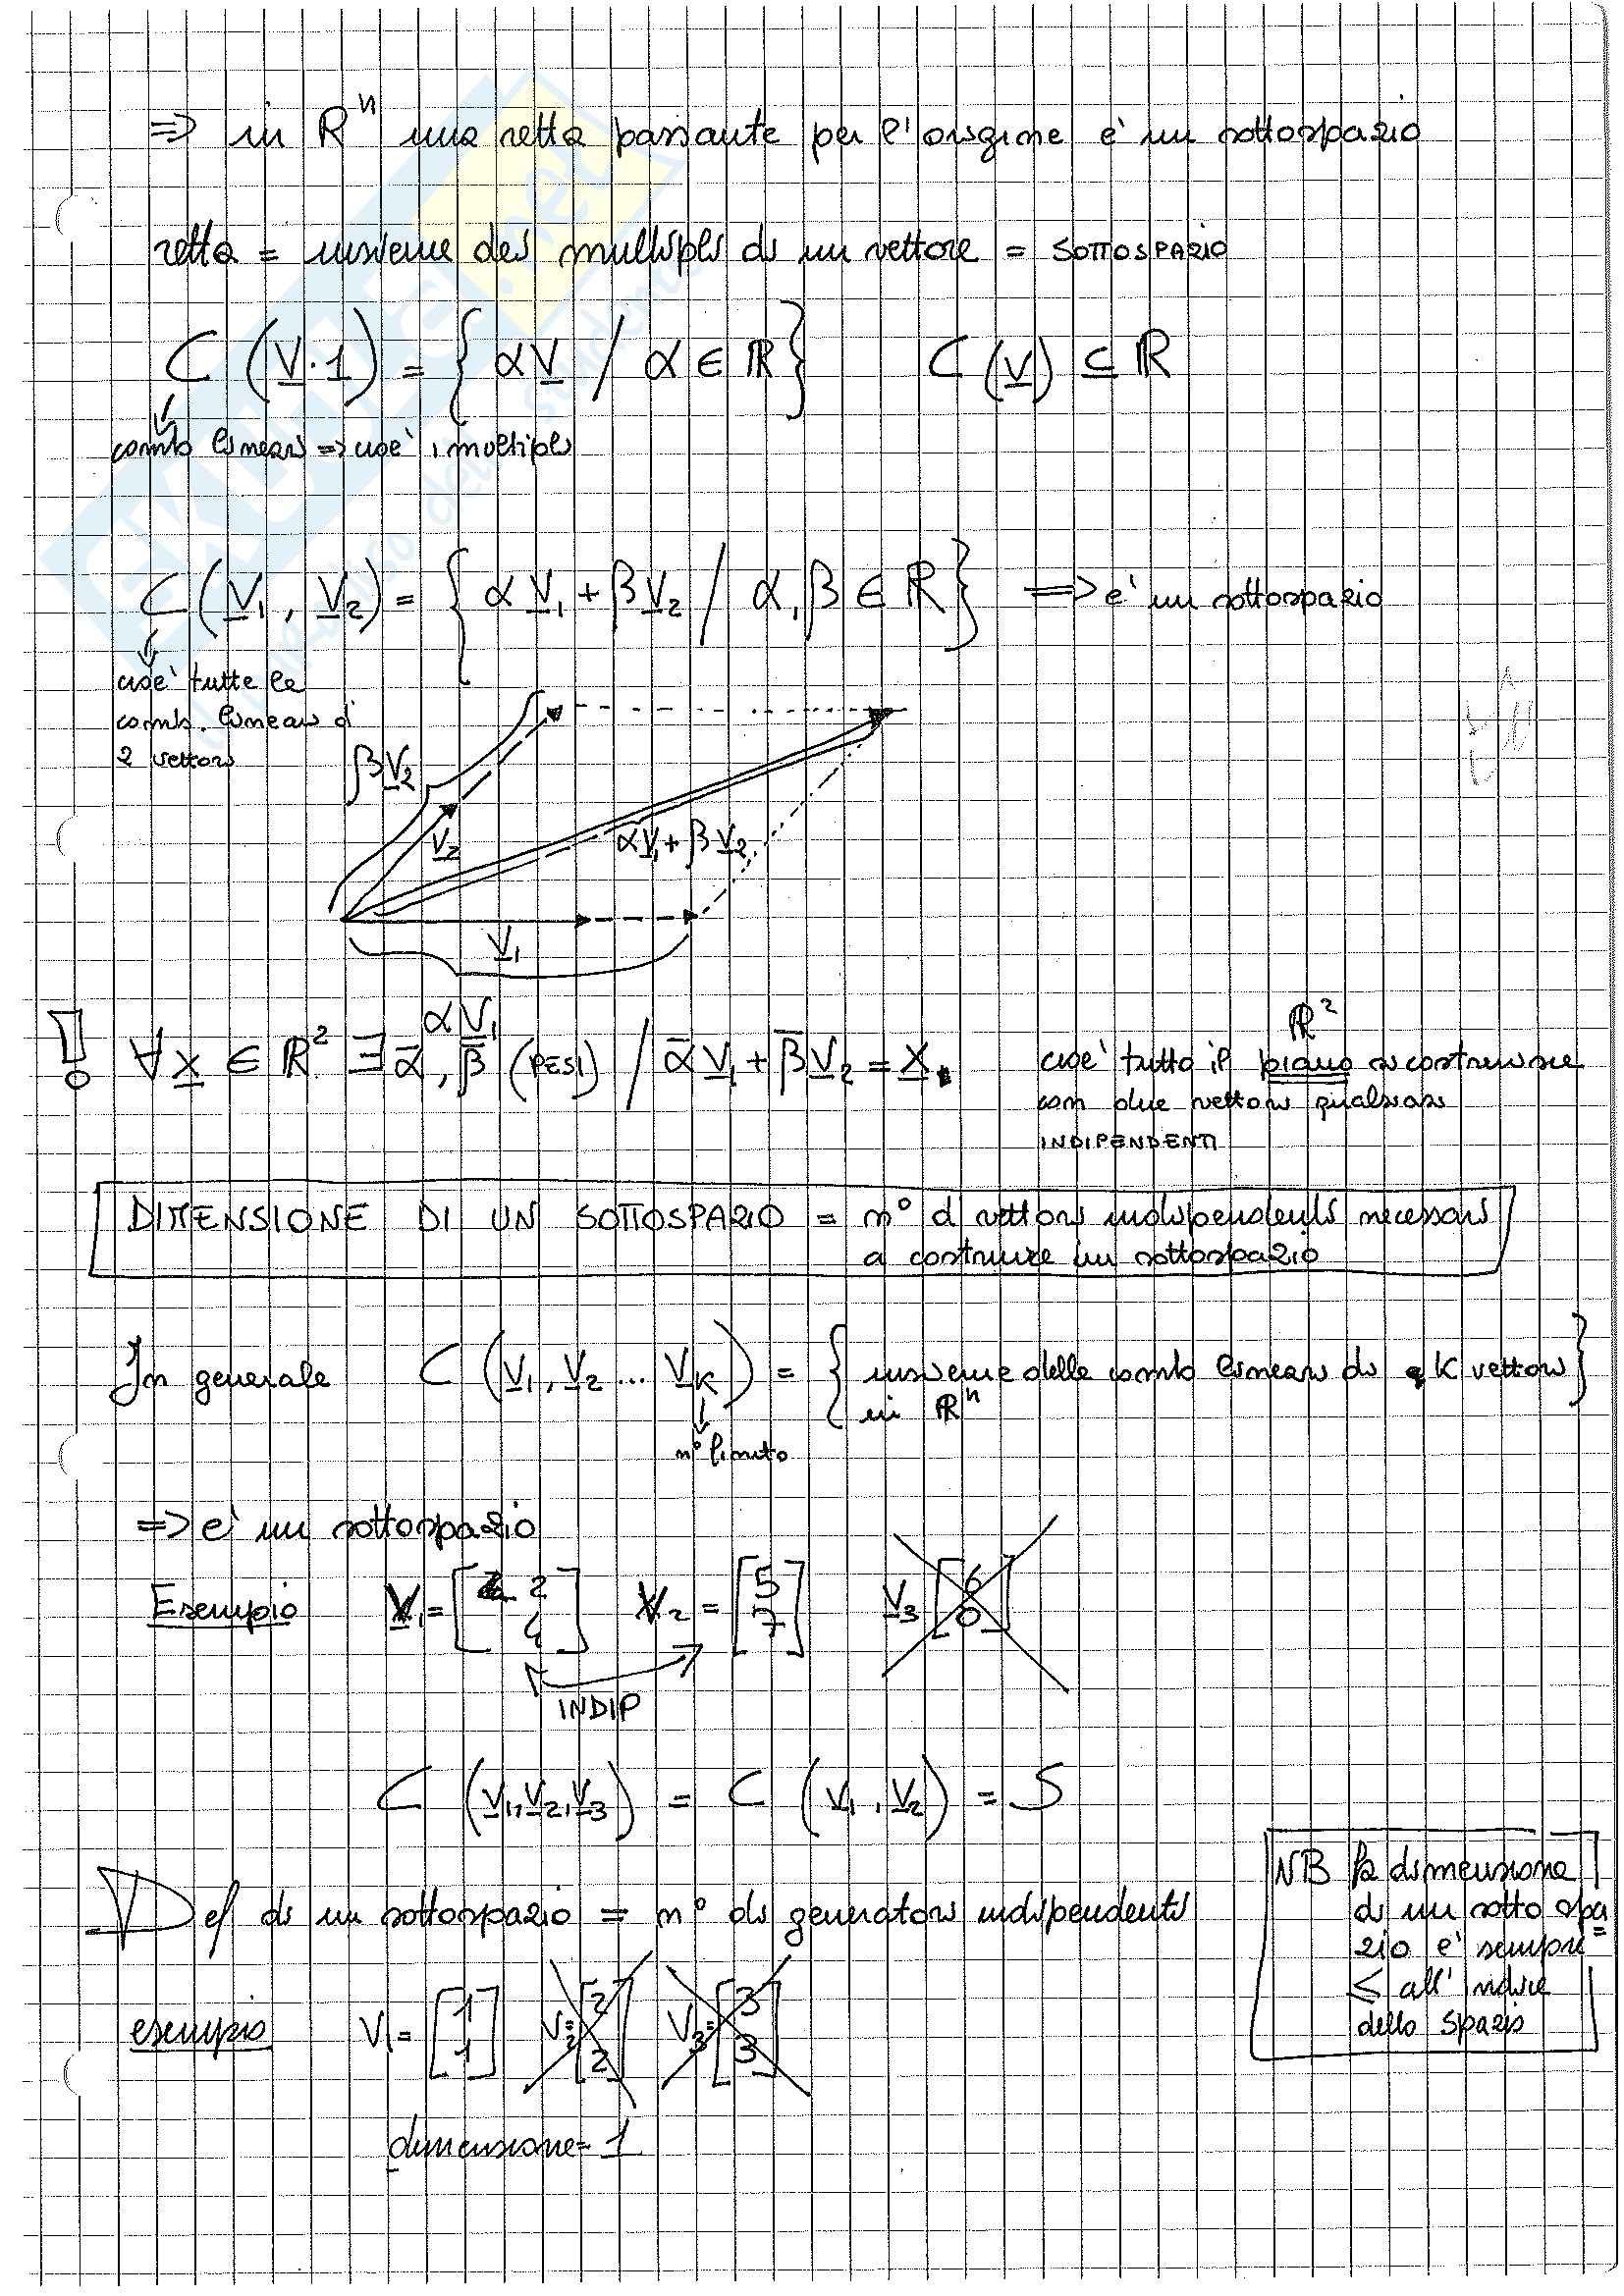 => in R^n una retta passante per l'origine è un sottospazio
retta = insieme dei multipli di un vettore = SOTTOSPAZIO
C (V·1) = { αV / α ∈ R }   C (V) ⊆ R
comb lineari => cioè i multipli
C (V1, V2) = { αV1 + βV2 / α, β ∈ R } => è un sottospazio
cioè tutte le
comb. lineari di
2 vettori
βV2
V2
αV1 + βV2
V1
αV1
! ∀ x ∈ R^2 ∃ ᾱ, β̄ (PESI) / ᾱV1 + β̄V2 = x.
R^2
cioè tutto il piano si costruisce
con due vettori qualsiasi
INDIPENDENTI
DIMENSIONE DI UN SOTTOSPAZIO = n° di vettori indipendenti necessari
a costruire un sottospazio
In generale C (V1, V2 ... VK) = { insieme delle comb lineari di K vettori
in R^n }
n° finito
=> è un sottospazio
Esempio V1 = [2 4] V2 = [5 7] V3 [6 0]
INDIP
C (V1, V2, V3) = C (V1, V2) = S
Def di un sottospazio = n° di generatori indipendenti
NB la dimensione
di un sotto spa=
zio è sempre
≤ all'indice
dello spazio
esempio V1 = [1 1] V2= [2 2] V3= [3 3]
dimensione = 1